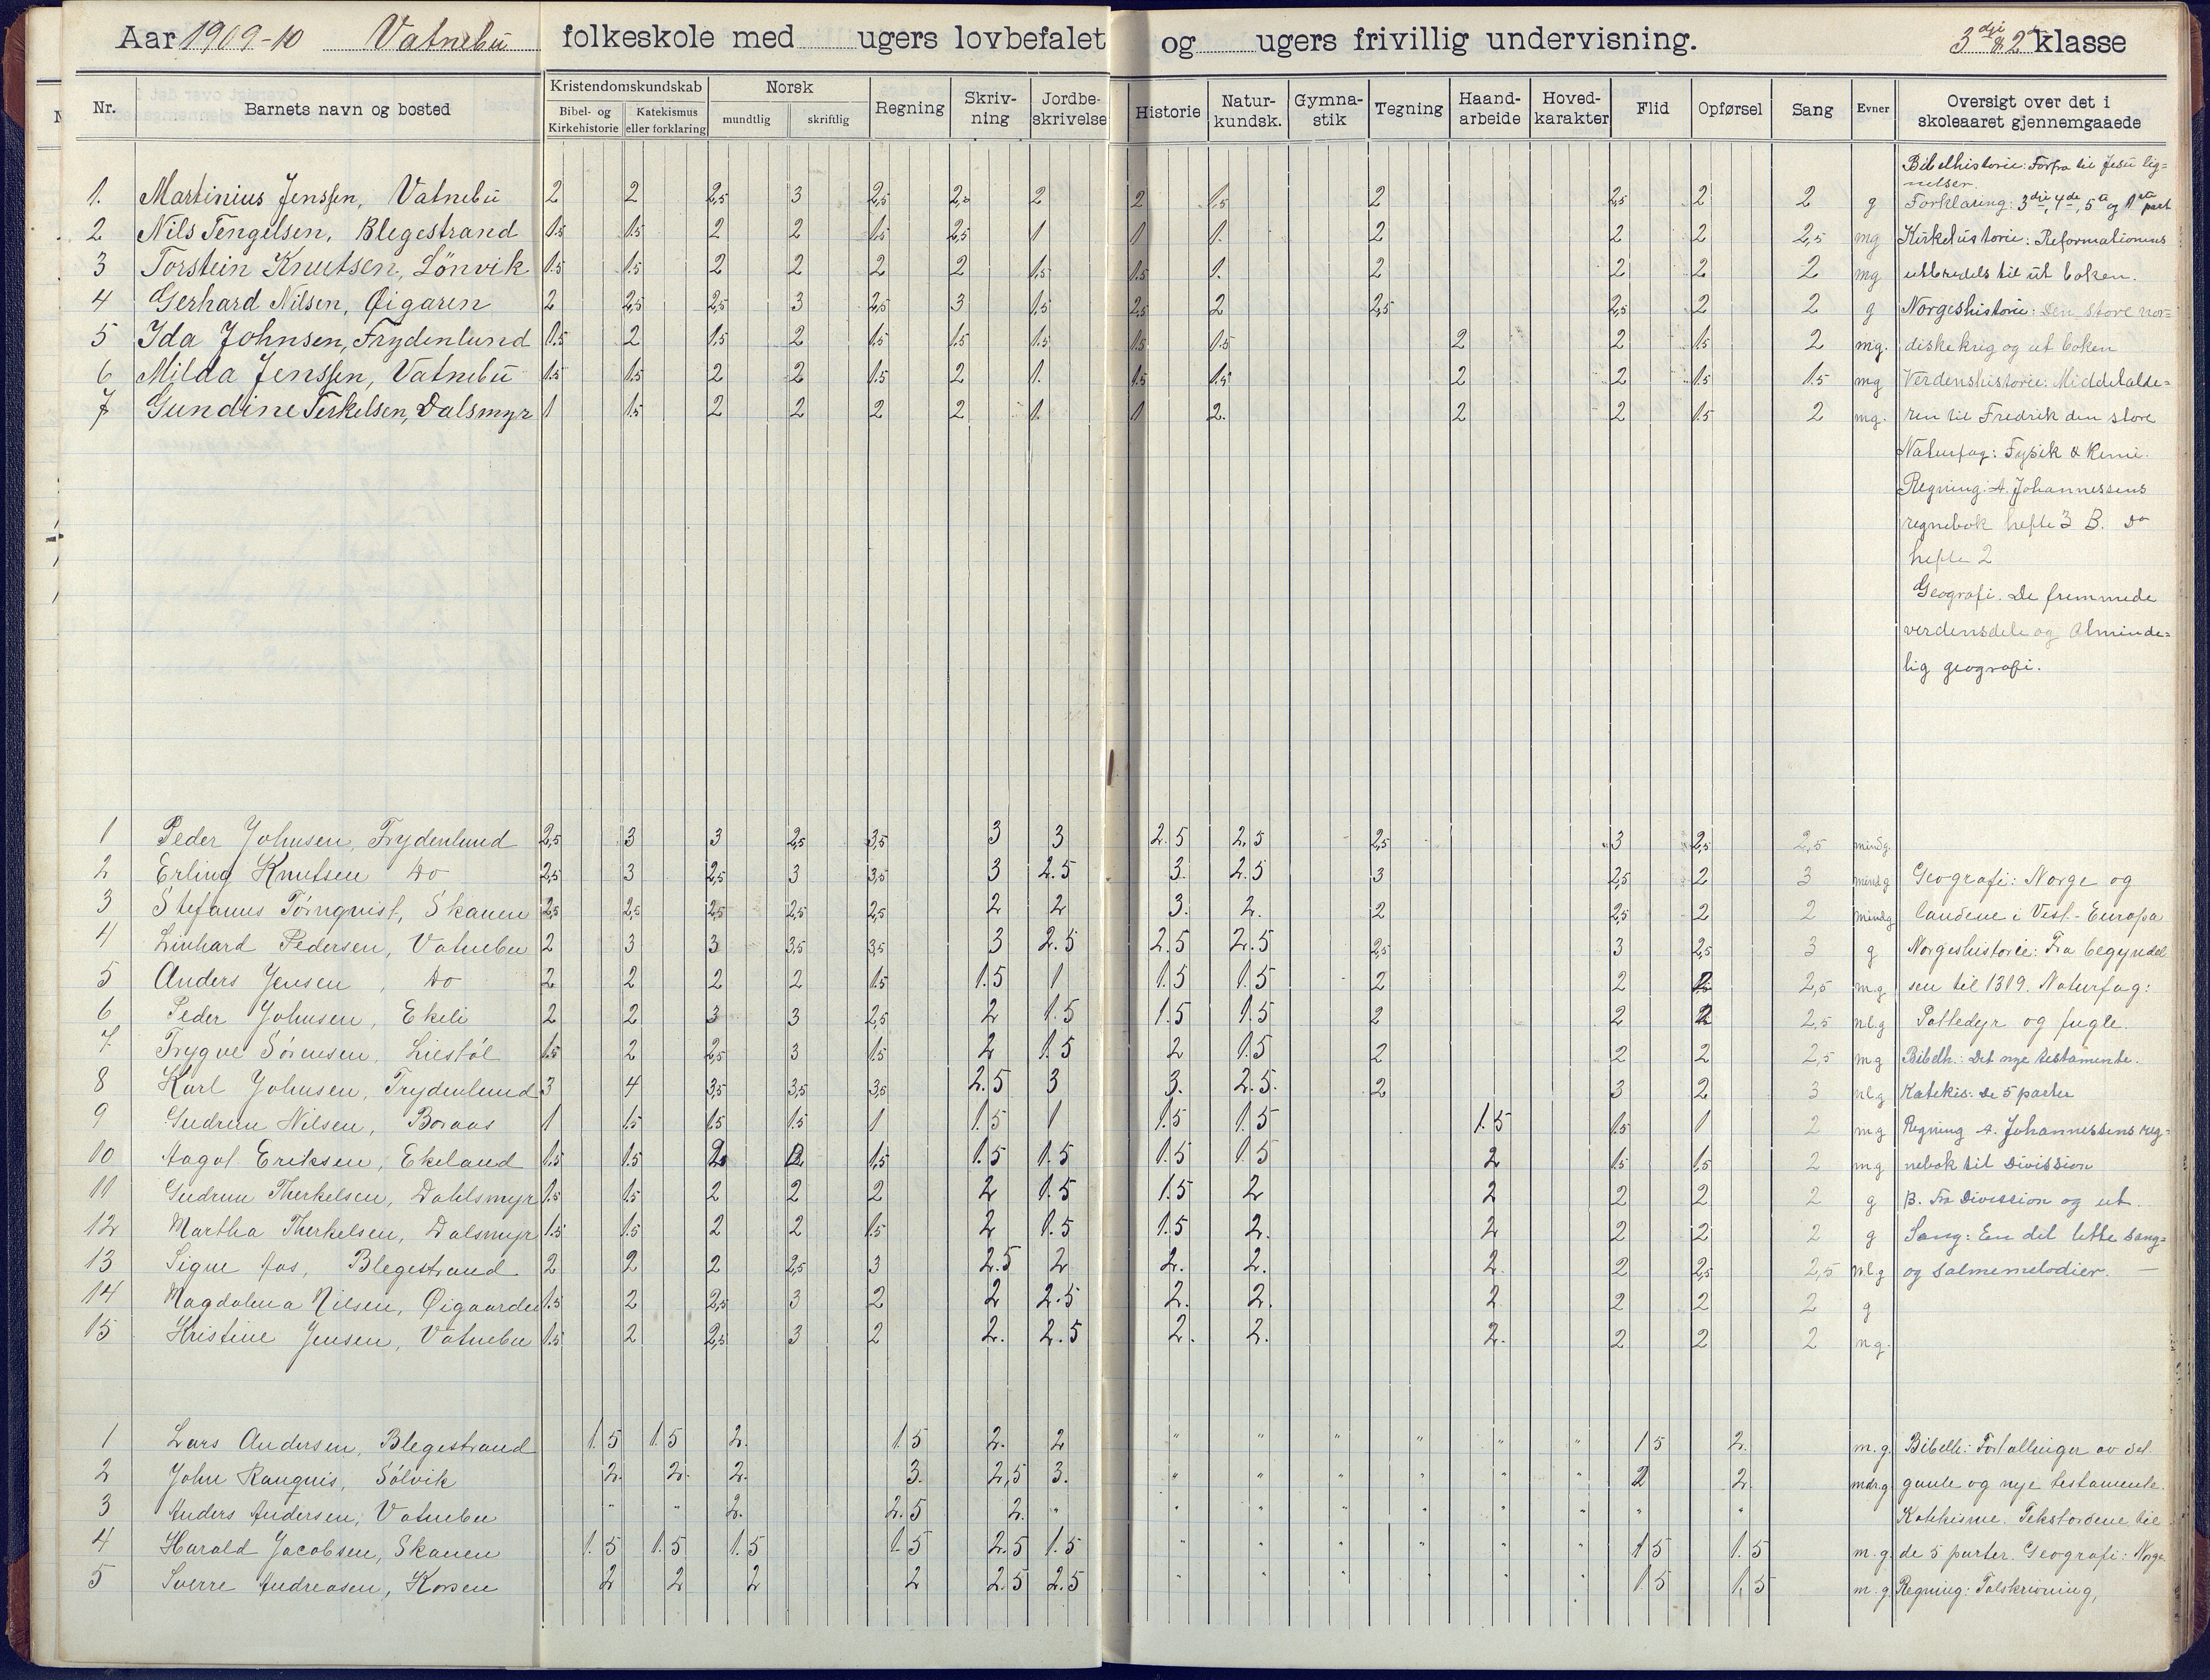 Aar 1909-10 Vatnebu folkeskole med ugers lovbefalet og ugers frivillig undervisning. 3die & 2den klasse
Nr. Barnets navn og bosted Kristendomskundskab Norsk Regning Skriv-ning Jordbe-skrivelse Historie Natur-kundsk. Gymna-stik Tegning Haand-arbeide Hoved-karakter Flid Opførsel Sang Evner Oversigt over det i skoleaaret gjennemgaaede
Bibel- og Kirkehistorie Katekismus eller forklaring mundtlig skriftlig
Bibelhistorie: Forfra til Jesu lig=
nelser.
1. Martinius Jenssen, Vatnebu 2 2 2,5 3 2,5 2,5 2 2 1,5 2 2,5 2 2 g Forklaring: 3die, 4de, 5te og 1ste part
2 Nils Tengelsen, Blegestrand 1.5 1.5 2 2 1.5 2,5 1 1 1. 2 2 2 2,5 mg Kirkehistorie: Reformationens
3 Torstein Knutsen, Lönvik 1.5 1.5 2 2 2 2 1,5 1.5 1. 2 2 2 2 mg utbredels til ut boken.
4 Gerhard Nilsen, Øigaren 2 2,5 2,5 3 2,5 3 1.5 2,5 2 2,5 2,5 2 2 g Norgeshistorie: Den store nor=
5 Ida Johnsen, Frydenlund 1.5 2 1.5 2 1.5 1.5 1.5 1.5 1.5 2 2 1.5 2 mg. diske krig og ut boken
6 Milda Jenssen, Vatnebu 1.5 1.5 2 2 1.5 2 1. 1.5 1.5 2 2 1.5 1.5 mg Verdenshistorie: Middelalde=
7 Gundine Terkelsen, Dalsmyr 1 1.5 2 2 2 2 1. 1 2. 2 2 1.5 2 mg. ren til Fredrik den store
Naturfag: Fysik & Kemi.
Regning: A. Johannessens
regnebok hefte 3 B. Do
hefte 2
Geografi. De fremmede
verdensdele og Alminde=
lig geografi.
1 Peder Johnsen, Frydenlund 2,5 3 3 2,5 3,5 3 3 2.5 2.5 2,5 3 2,5 2,5 mindg.
2 Erling Knutsen Do 2,5 3 2,5 3 3,5 3 2.5 3. 2.5 3 2,5 2 3 mindg Geografi: Norge og
3 Stefanus Törnqvist, Skauen 2,5 2,5 2,5 2,5 2,5 2 2 3. 2. 2 2,5 2 2 mindg landene i Vest-Europa
4 Linhard Pedersen, Vatnebu 2 3 3 3,5 3,5 3 2.5 2.5 2.5 2,5 3 2,5 3 g Norgeshistorie: Fra begyndel
5 Anders Jensen, Do 2 2 2 2 1.5 1.5 1 1.5 1.5 2 2 2 2,5 m.g sen til 1319. Naturfag:
6 Peder Johnsen, Ekeli 2 2 3 3 2,5 2 1.5 1.5 1.5 2 2 2 2,5 nl.g Pattedyr og fugle.
7. Trygve Sörensen, Liestöl 1.5 2 2,5 3 1.5 2 1.5 2 1.5 2 2 2 2,5 mg Bibelh.: Det nye testamente.
8 Karl Johnsen, Frydenlund 3 4 3,5 3,5 3,5 2.5 3 3. 2.5. 2 3 2 3 nl.g Katekis: De 5 parter
9 Gudrun Nilsen, Boraas 1 1.5 1.5 1.5 1 1.5 1 1.5 1.5 1.5 1.5 1 2 m.g Regning A. Johannessens reg=
10 Aagot Eriksen, Ekeland 1.5 1.5 2 2 1,5 1.5 1.5 1.5 1.5 2 1.5 1,5 2 m.g nebok til Divission
11 Gudrun Therkelsen, Dahlsmyr 1.5 1.5 2 2 2 2 1.5 1.5 2 2 2 2 2 g B. Fra Divission og ut.
12 Martha Therkelsen, Dalsmyr 1.5 1.5 2 2 1.5 2 1.5 1.5 2. 2 2 2 2 g Sang: En del lette sang=
13 Signe Aas, Blegestrand 2 2 2 2,5 3 2.5 2 2. 2. 2. 2 2,5 2,5 nl.g og salmemelodier. —
14 Magdalena Nilsen, Øigaarden 1.5 2 2,5 3 2 2 2.5 2. 2. 2 2 2 2 g
15 Kristine Jensen, Vatnebu 1.5 2 2,5 3 2 2. 2.5 2. 2. 2. 2 2 2 ng.
1 Lars Andersen, Blegestrand 1.5 1.5 2. 1.5 2. 2 " " " " " " 1 5 2. m.g. Bibelh: Fortællinger av det
2 John Ranquis, Sölvik 2. 2. 2. 3. 2,5 3. " " " " " " 2 2. mdr.g gamle og nye testamente.
3 Anders Andersen, Vatnebu " " 2. 2.5 2. " " " " " " " " " Katekisme. Tekstordene til
4 Harald Jacobsen, Skauen 1.5 1.5 1.5 1.5 2.5 1.5 " " " " " " 1 5 1.5 m.g. de 5 parter. Geografi: Norge
5 Sverre Andreasen, Korsen 2 2 2 2 2.5 2.5 " " " " " " 1.5 1,5 m.g. Regning: Talskrivning,